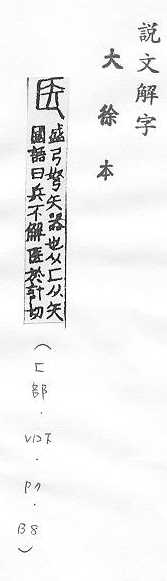 說文解字
大徐本
医
盛弓弩矢器也从匸从矢
國語曰兵不解医於計切
(匸部．V12下．P7．B8)